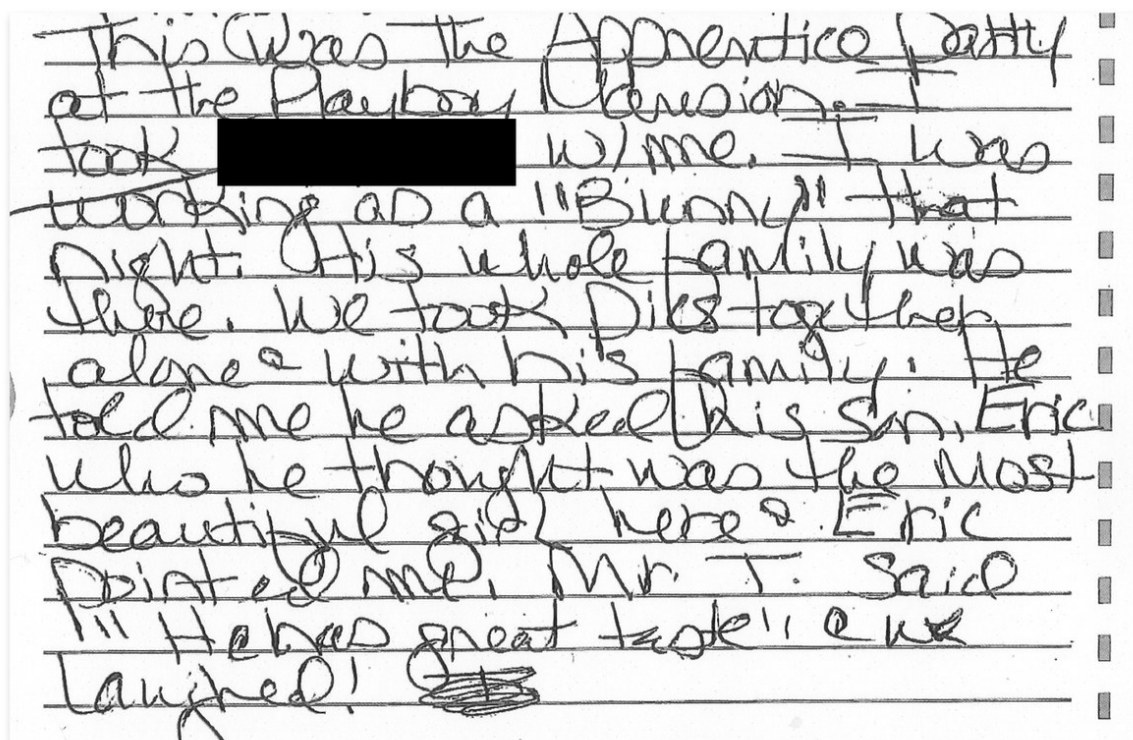 This was the Apprentice Party
at the Playboy Mansion. I
took w/me. I was
working as a "Bunny" that
night. His whole family was
there. We took pics together
alone & with his family. He
told me he asked his son, Eric
who he thought was the most
beautiful girl here & Eric
pointed me. Mr. T. said
"He has great taste" & we
laughed!